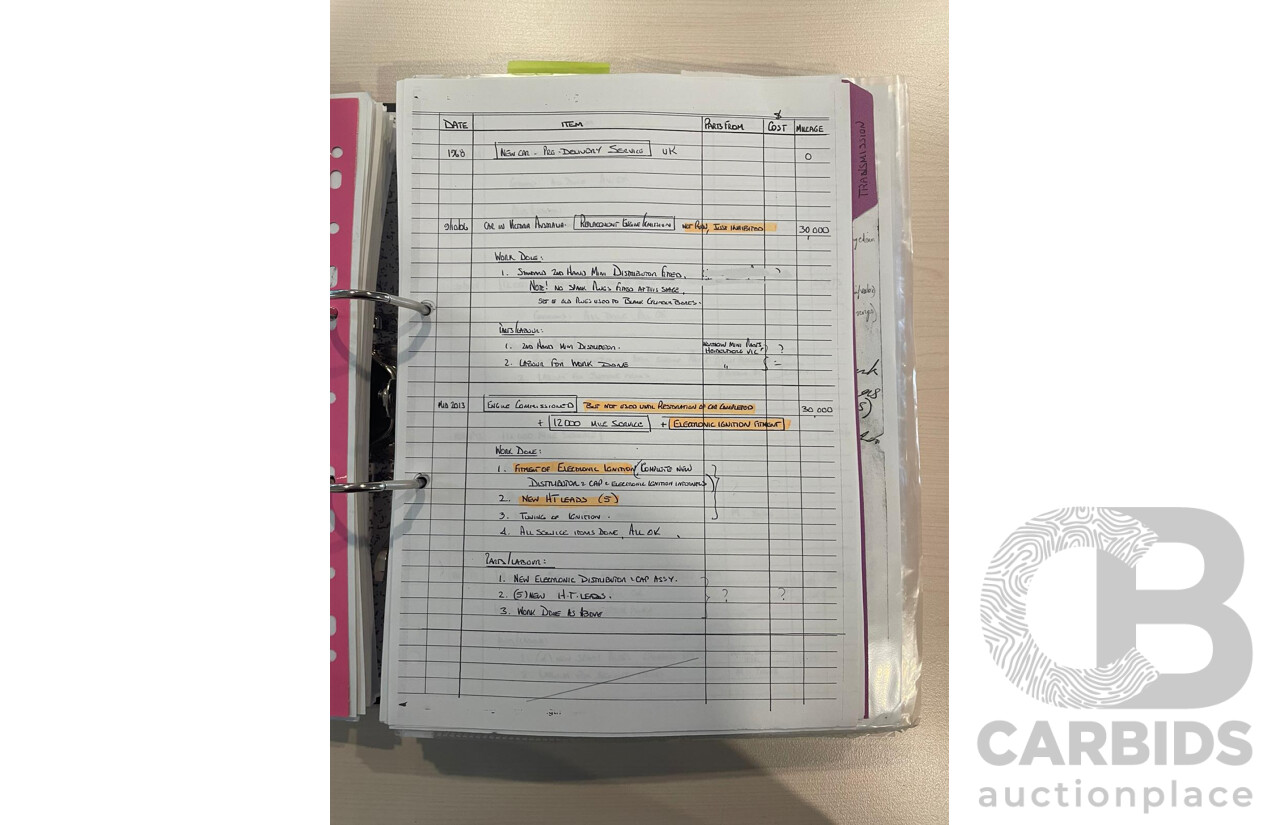 DATE ITEM PARTS FROM $ COST MILEAGE
1968 NEW CAR - PRE-DELIVERY SERVICE UK 0
CAR IN VICTORIA AUSTRALIA. REPLACEMENT ENGINE/IGNITION NOT RUN, JUST INHIBITED 30,000
WORK DONE:
1. STANDARD 2ND HAND MINI DISTRIBUTOR FITTED.
NOTE! NO SPARK PLUGS FITTED AT THIS STAGE,
SET OF OLD PLUGS USED TO BLANK CYLINDER BORES.
PARTS/LABOUR:
1. 2ND HAND MINI DISTRIBUTOR. MINI PARTS, VIC ?
2. LABOUR FOR WORK DONE " -
MID 2013 ENGINE COMMISSIONED BUT NOT USED UNTIL RESTORATION OF CAR COMPLETED 30,000
+ 12000 MILE SERVICE + ELECTRONIC IGNITION FITMENT
WORK DONE:
1. FITMENT OF ELECTRONIC IGNITION (COMPLETE NEW
DISTRIBUTOR & CAP & ELECTRONIC IGNITION INTERNALS)
2. NEW HT LEADS (5)
3. TUNING OF IGNITION.
4. ALL SERVICE ITEMS DONE, ALL OK.
PARTS/LABOUR:
1. NEW ELECTRONIC DISTRIBUTOR & CAP ASSY.
2. (5) NEW H.T. LEADS. ? ?
3. WORK DONE AS ABOVE
TRANSMISSION
CB
CARBIDS
auctionplace